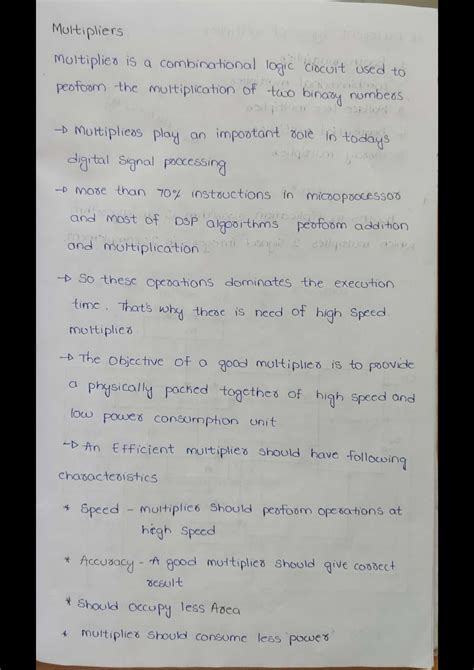 Multipliers
Multiplier is a combinational logic circuit used to
perform the multiplication of two binary numbers
→ Multipliers play an important role in todays
digital signal processing
→ more than 70% instructions in microprocessor
and most of DSP algorithms perform addition
and multiplication.
→ So these operations dominates the execution
time. That's why there is need of high speed
multiplier
→ The Objective of a good multiplier is to provide
a physically packed together of high speed and
low power consumption unit
→ An Efficient multiplier should have following
characteristics
* Speed - multiplier should perform operations at
high speed
* Accuracy - A good multiplier should give correct
result
* Should occupy less Area
* multiplier should consume less power